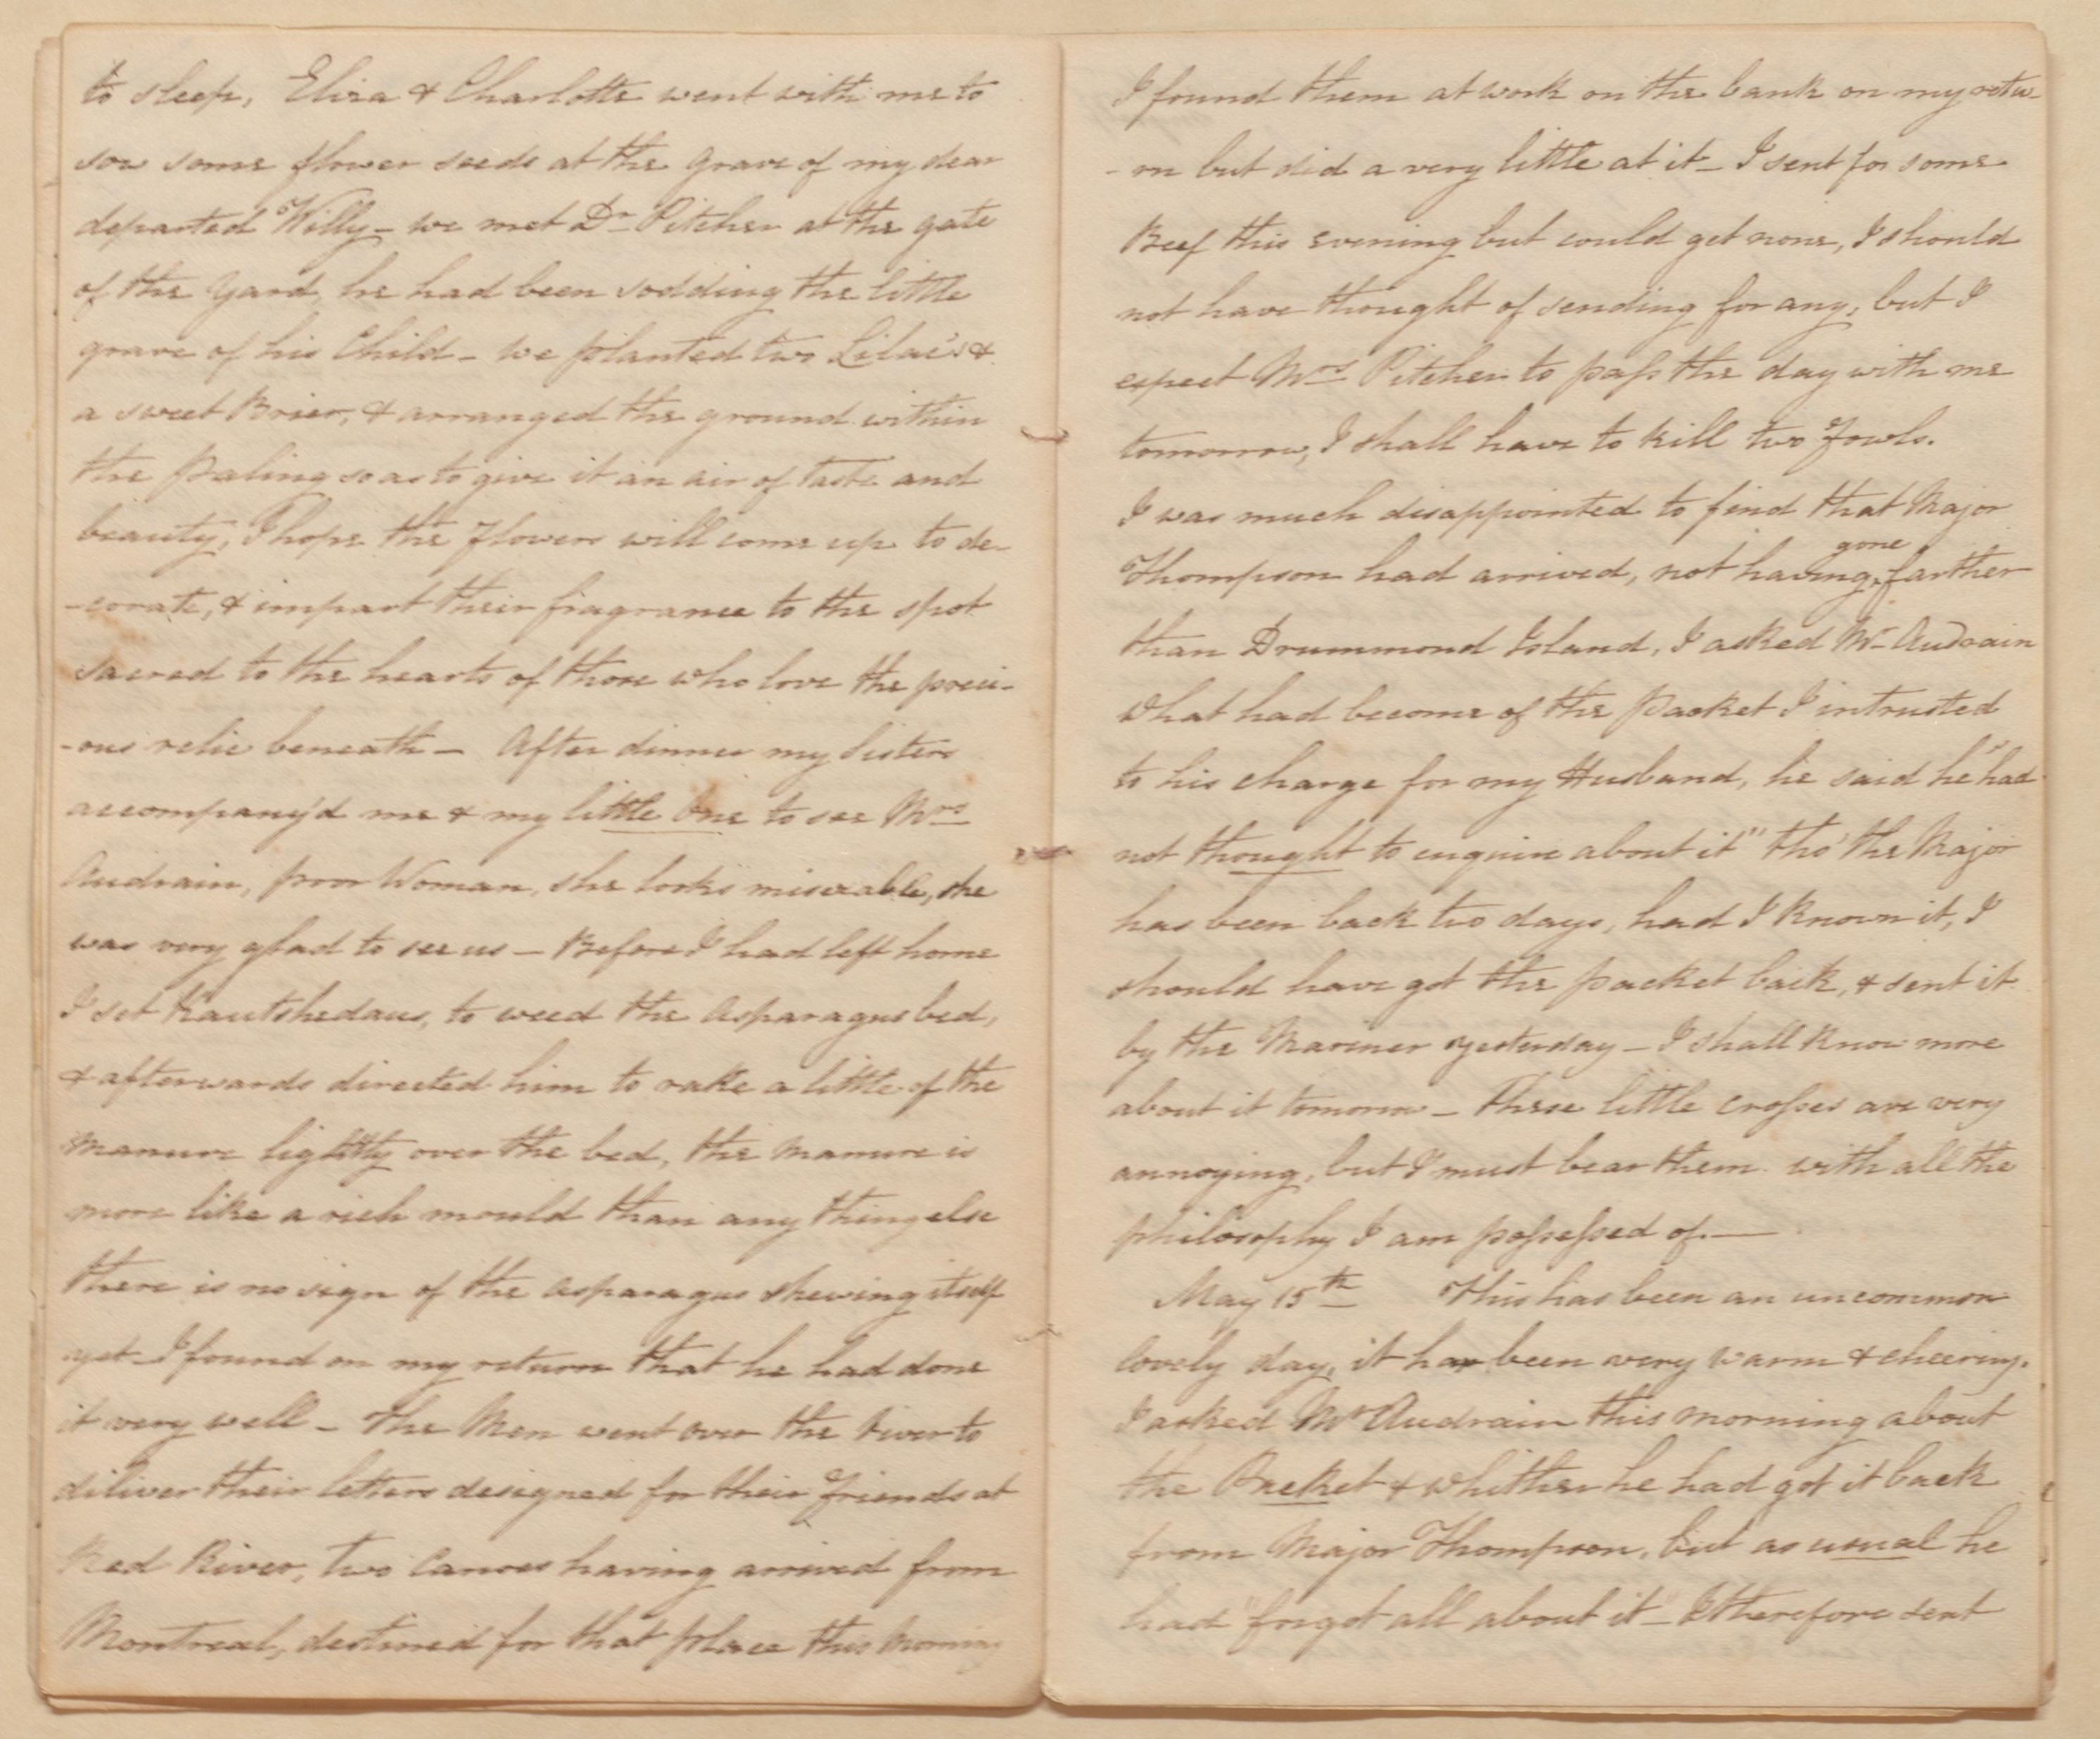 to sleep, Eliza & Charlotte went with me to
sow some flower seeds at the grave of my dear
departed Willy – we met Dr Pitcher at the gate
of the Yard, he had been sodding the little
grave of his Child – we planted two Lilac's &
a sweet Brier, & arranged the ground within
the paling so as to give it an air of taste and
beauty, I hope the flowers will come up to de-
-corate, & impart their fragrance to the spot
sacred to the hearts of those who love the preci-
-ous relic beneath – After dinner my Sisters
accompany'd me & my little One to see Mrs
Audrain, poor Woman, she looks miserable, she
was very glad to see us – Before I had left home
I set Kautshedaus, to weed the Asparagus bed,
& afterwards directed him to rake a little of the
Manure lightly over the bed, the Manure is
more like a rich mould than any thing else
there is no sign of the Asparagus shewing itself
yet – I found on my return that he had done
it very well – The Men went over the River to
diliver their letters designed for their friends at
Red River, two Canoes having arrived from
Montreal, destined for that place this Morning
I found them at work on the bank on my retu-
-rn but did a very little at it – I sent for some
Beef this evening but could get none, I should
not have thought of sending for any, but I
expect Mrs Pitcher to pass the day with me
tomorrow, I shall have to kill two Fowls.
I was much disappointed to find that Major
gone
Thompson had arrived, not having farther
than Drummond Island, I asked Mr Audrain
what had become of the Packet I intrusted
to his charge for my Husband, he said he "had
not thought to enquire about it" tho' the Major
has been back two days, had I known it, I
should have got the packet back, & sent it
by the Mariner yesterday – I shall know more
about it tomorrow – These little crosses are very
annoying, but I must bear them with all the
philosophy I am possessed of. —
May 15th This has been an uncommon
lovely day, it has been very warm & cheering.
I asked Mr Audrain this morning about
the Packet & whither he had got it back
from Major Thompson, but as usual he
had "forgot all about it – I therefore sent